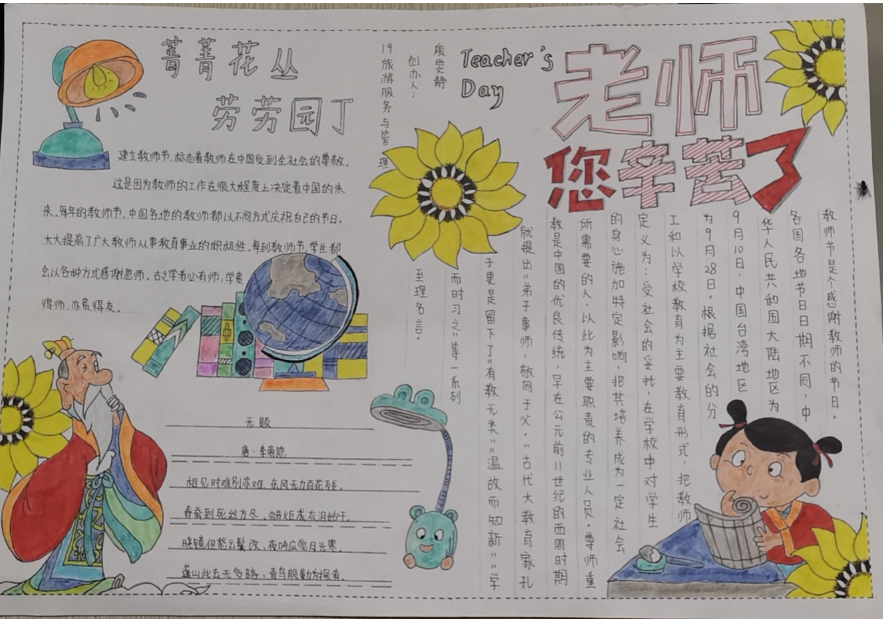 菁菁花丛
芳芳园丁
建立教师节，标志着教师在中国受到全社会的尊敬。
这是因为教师的工作在很大程度上决定着中国的未
来。每年的教师节，中国各地的教师都以不同方式庆祝自己的节日。
大大提高了广大教师从事教育事业的积极性。每到教师节，学生都
会以各种方式感谢恩师。古之学者必有师，学贵
得师，亦贵得友。
19旅游服务与管理
创办人：
Teacher's
Day
老师
您辛苦了
教师节是个感谢教师的节日。
各国各地节日日期不同，中
华人民共和国大陆地区为
9月10日，中国台湾地区
为9月28日。根据社会的分
工和以学校教育为主要教育形式，把教师
定义为：受社会的委托，在学校中对学生
的身心施加特定影响，把其培养成为一定社会
所需要的人，以此为主要职责的专业人员。尊师重
教是中国的优良传统，早在公元前11世纪的西周时期
就提出"弟子事师，敬同于父。"古代大教育家孔
子更是留下了"有教无类""温故而知新""学
而时习之"等一系列
至理名言。
无题
唐·李商隐
相见时难别亦难，东风无力百花残。
春蚕到死丝方尽，蜡炬成灰泪始干。
晓镜但愁云鬓改，夜吟应觉月光寒。
蓬山此去无多路，青鸟殷勤为探看。